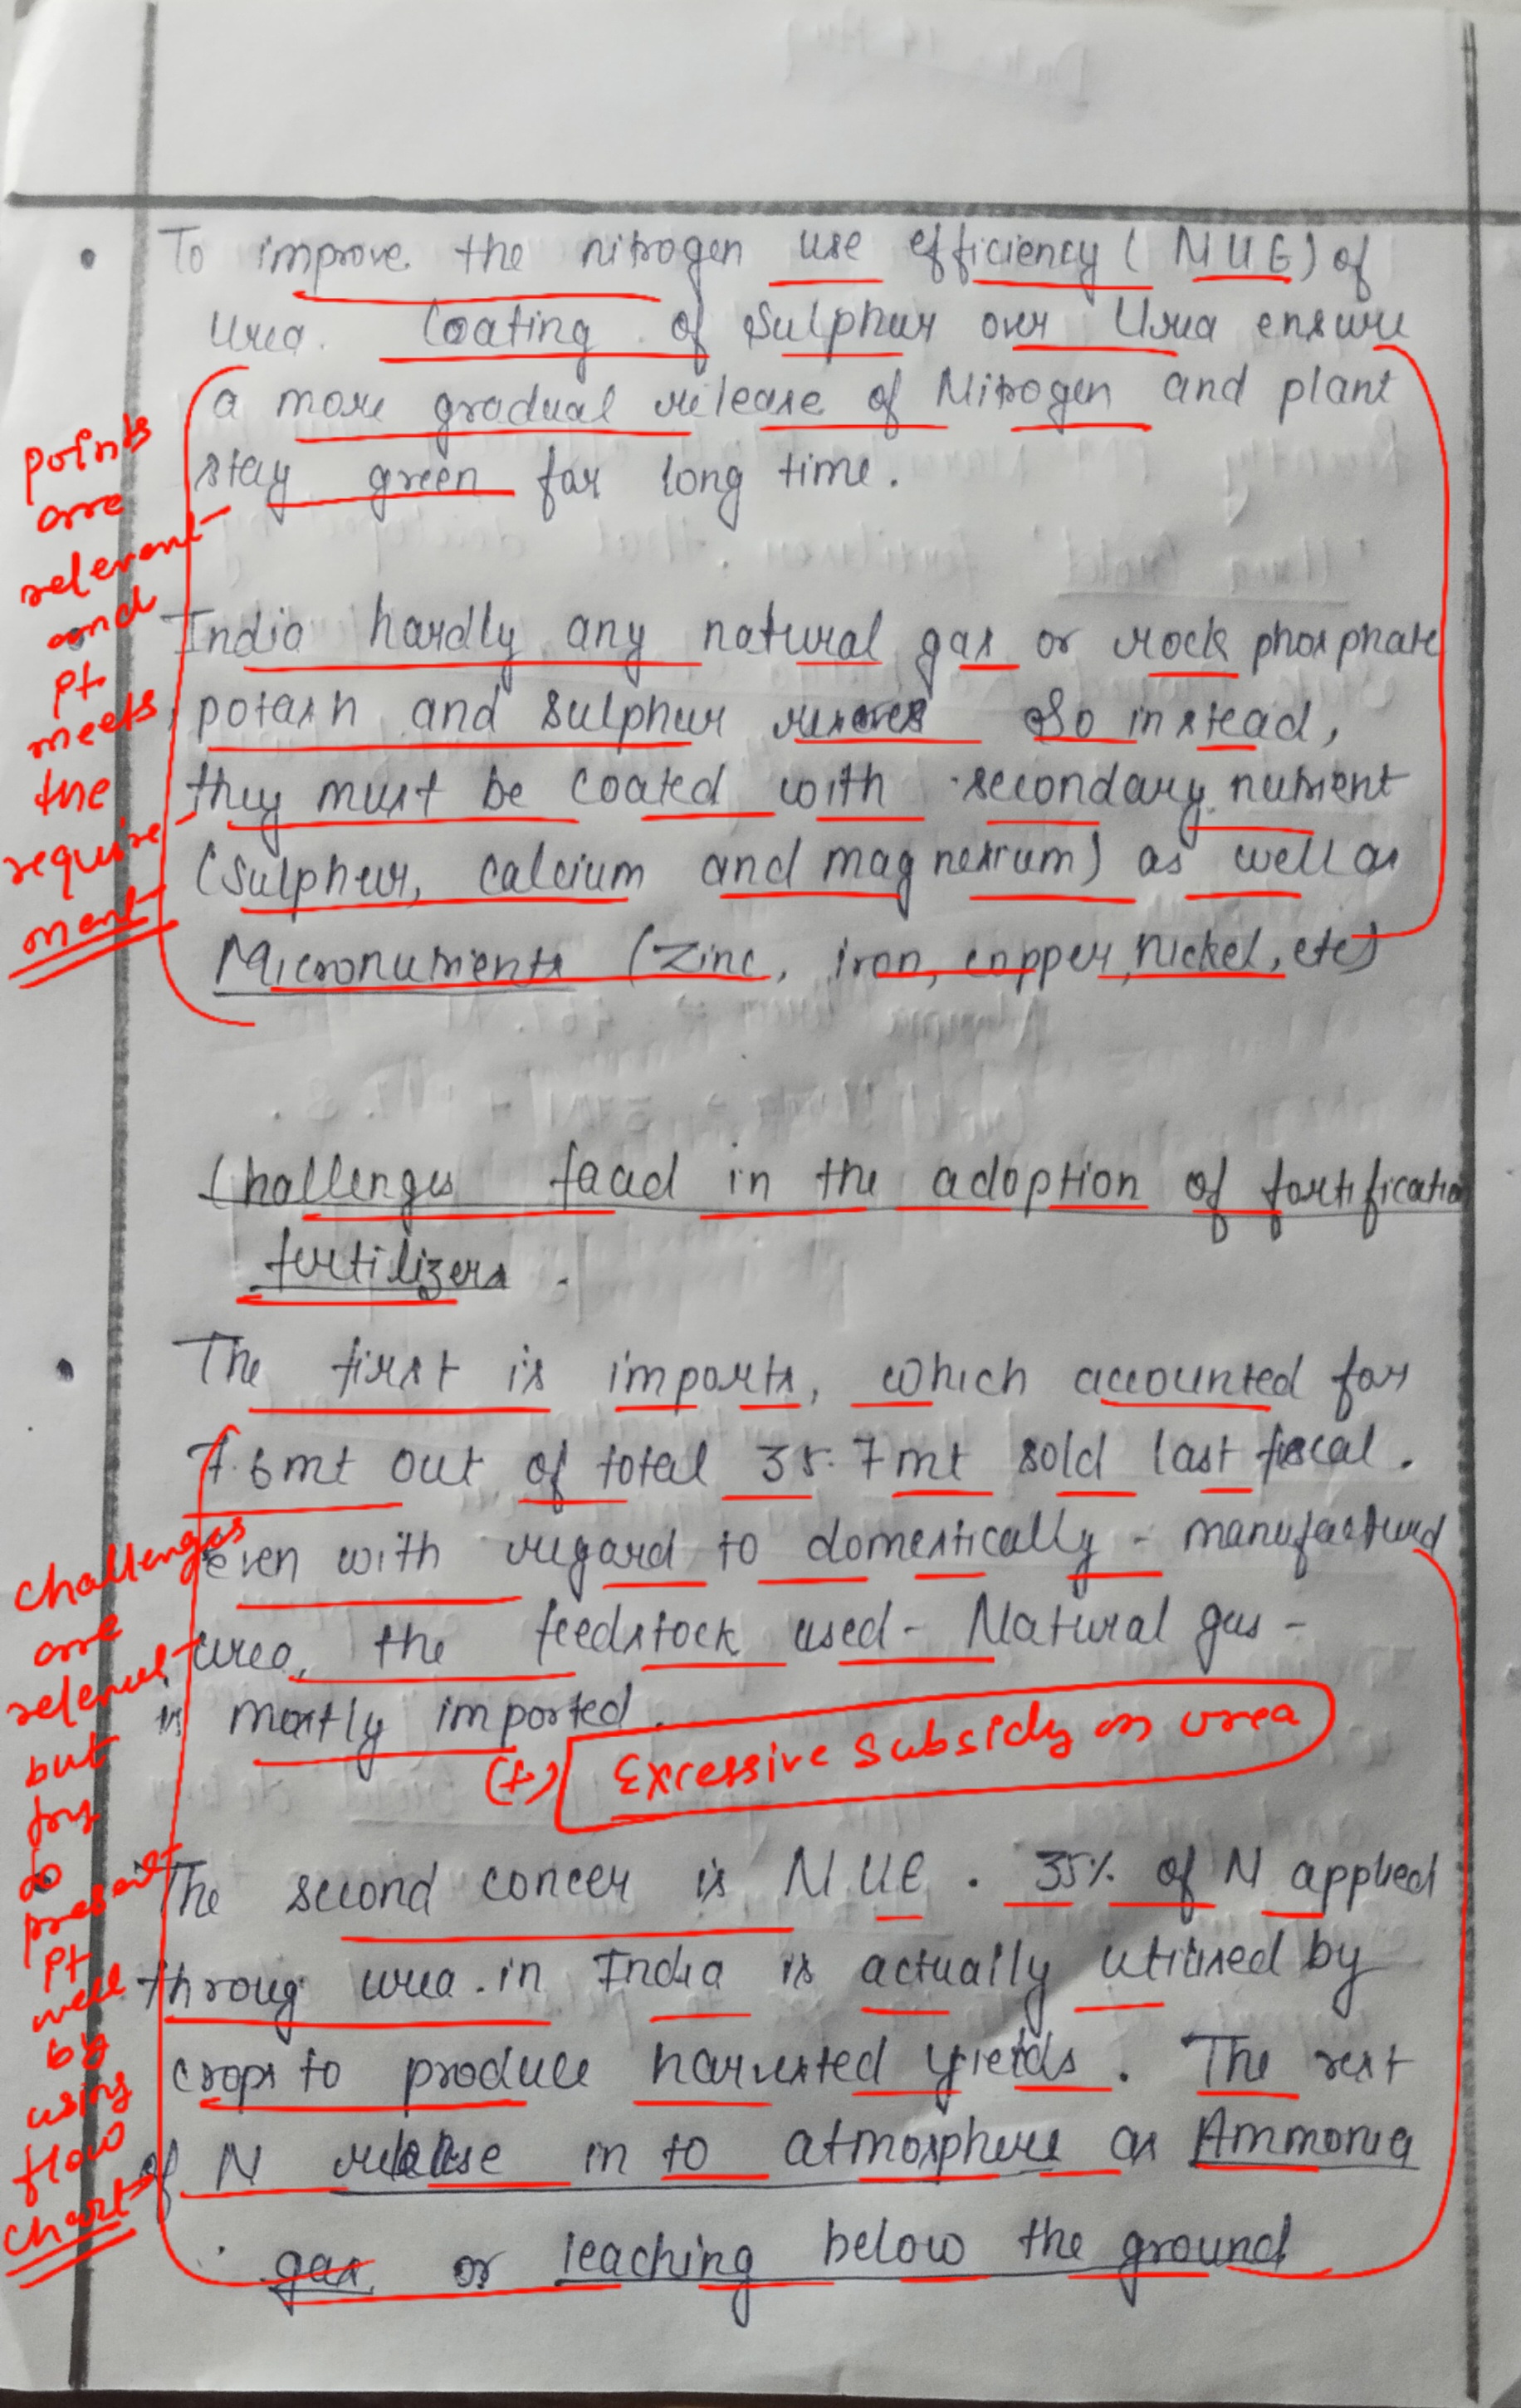 To improve the nitrogen use efficiency (NUE) of
Urea. Coating of Sulphur over Urea ensure
a more gradual release of Nitrogen and plant
stay green for long time.
points
are
relevant
and
pt
meets
the
require
ment
India hardly any natural gas or rock phosphate
potash and sulphur reserves So instead,
they must be coated with secondary nutrient
(Sulphur, calcium and magnesium) as well as
Micronutrients (Zinc, iron, copper, Nickel, etc)
Challenges faced in the adoption of fortification
fertilizers.
The first is imports, which accounted for
7.6mt out of total 35.7mt sold last fiscal.
even with regard to domestically - manufactured
urea, the feedstock used - Natural gas -
is mostly imported.
(+) Excessive subsidy on urea
challenges
are
relevant
but
try
to
present
pt
well
by
using
flow
chart
The second concer is NUE. 35% of N applied
throug urea in India is actually utilised by
crops to produce harvested yields. The rest
of N release in to atmosphere as Ammonia
gas or leaching below the ground